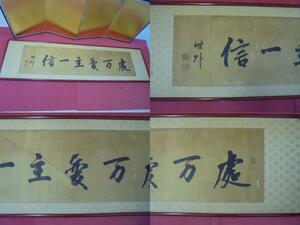 處万変主一信
世外
一信
世外
万変主一
處万